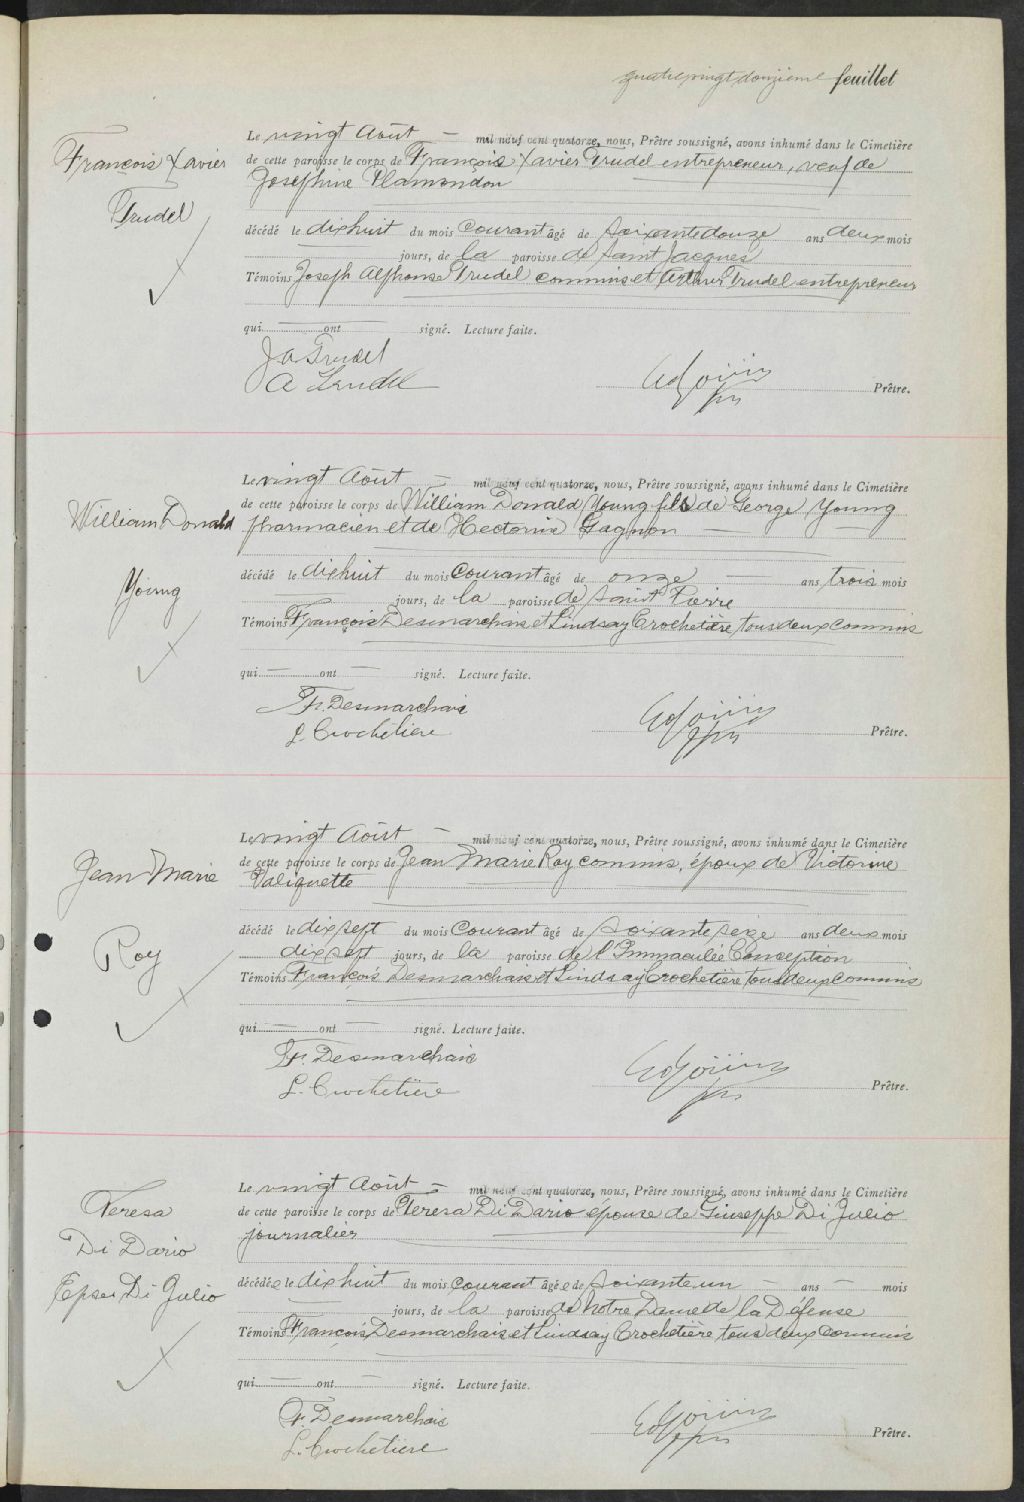 quatrevingt douzième feuillet
François Xavier
Trudel
Le vingt Août — mil neuf cent quatorze, nous, Prêtre soussigné, avons inhumé dans le Cimetière
de cette paroisse le corps de François Xavier Trudel entrepreneur, veuf de
Josephine Plamondon
décédé le dixhuit du mois courant âgé de soixantedouze ans deux mois
jours, de la paroisse de Saint Jacques
Témoins Joseph Alphonse Trudel commis et Arthur Trudel entrepreneur
qui — ont signé. Lecture faite.
J A Trudel
A Trudel
Prêtre.
William Donald
Young
Le vingt Août — mil neuf cent quatorze, nous, Prêtre soussigné, avons inhumé dans le Cimetière
de cette paroisse le corps de William Donald Young fils de George Young
pharmacien et de Hectorine Gagnon
décédé le dixhuit du mois courant âgé de onze — ans trois mois
jours, de la paroisse de Saint Pierre
Témoins François Desmarchais et Lindsay Crochetière tous deux commis
qui — ont — signé. Lecture faite.
Fr. Desmarchais
L. Crochetiere
Prêtre.
Jean Marie
Roy
Le vingt Août — mil neuf cent quatorze, nous, Prêtre soussigné, avons inhumé dans le Cimetière
de cette paroisse le corps de Jean Marie Roy commis, époux de Victorine
Valiquette
décédé le dixsept du mois courant âgé de soixanteseize ans deux mois
dixsept jours, de la paroisse de l'Immaculée Conception
Témoins François Desmarchais et Lindsay Crochetière tous deux commis
qui — ont — signé. Lecture faite.
Fr. Desmarchais
L. Crochetiere
Prêtre.
Teresa
Di Dario
Epse Di Julio
Le vingt Août — mil neuf cent quatorze, nous, Prêtre soussigné, avons inhumé dans le Cimetière
de cette paroisse le corps de Teresa Di Dario épouse de Giuseppe Di Julio
journalier
décédée le dixhuit du mois courant âgée de soixante un — ans — mois
jours, de la paroisse de Notre Dame de la Défense
Témoins François Desmarchais et Lindsay Crochetière tous deux commis
qui — ont — signé. Lecture faite.
Fr. Desmarchais
L. Crochetiere
Prêtre.